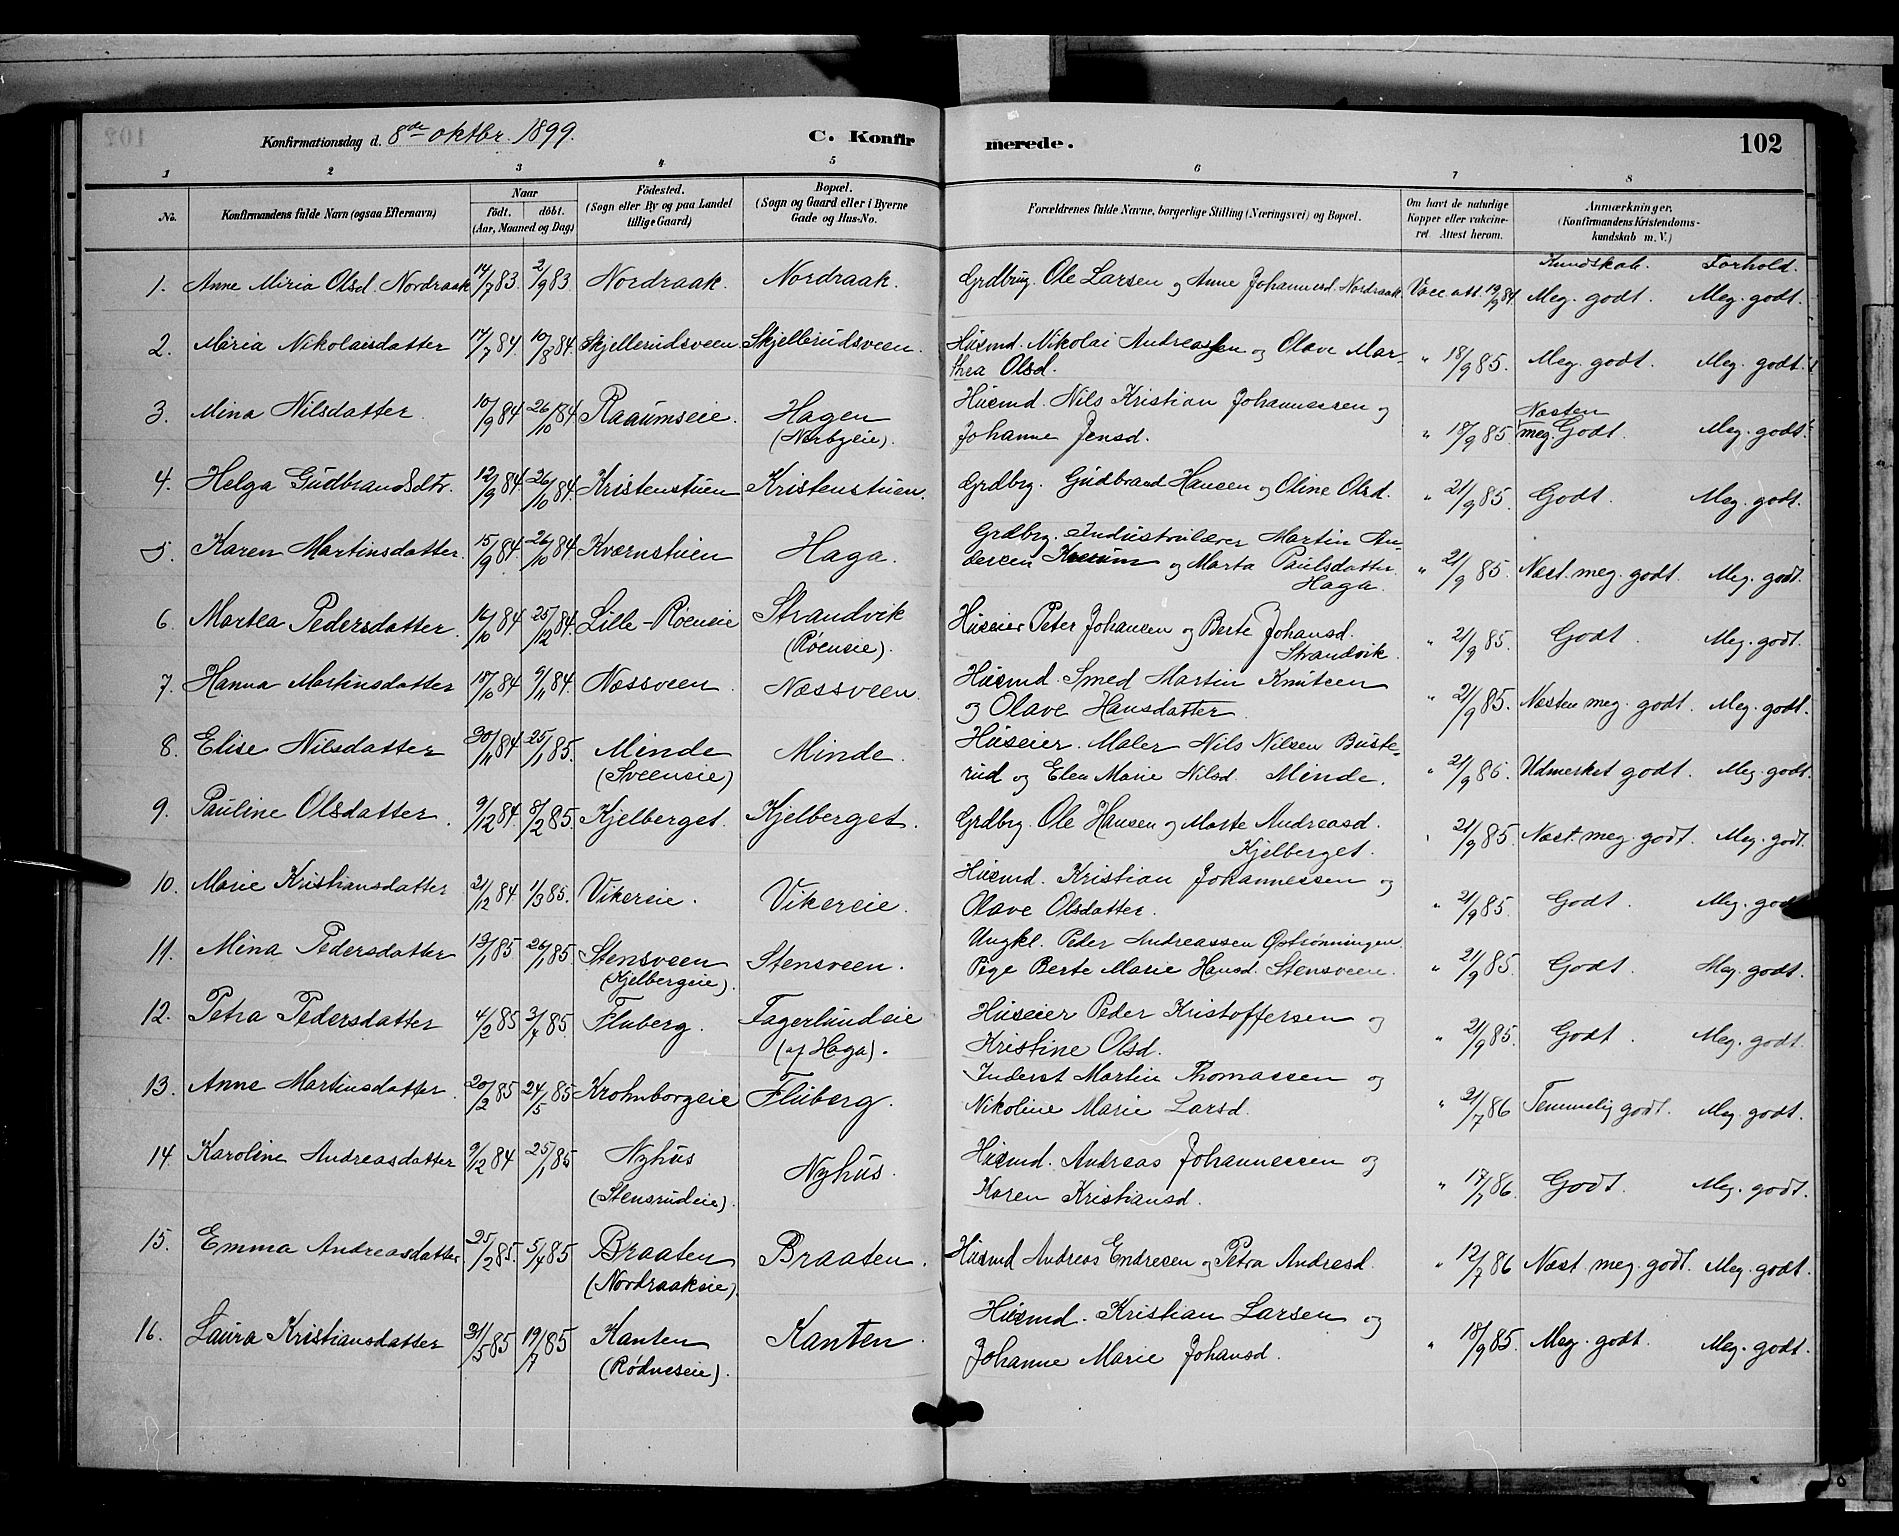 Konfirmationsdag d. 8de oktbr. 1899. C. Konfirmerede. 102
1 2 3 4 5 6 7 8
No. Konfirmandens fulde Navn (ogsaa Efternavn) Naar födt. döbt. (Aar, Maaned og Dag) Födested. (Sogn eller By og paa Landet tillige Gaard) Bopæl. (Sogn og Gaard eller i Byerne Gade og Hus-No. Forældrenes fulde Navne, borgerlige Stilling (Næringsvei) og Bopæl. Om havt de naturlige Kopper eller vakcineret. Attest herom. Anmærkninger. (Konfirmandens Kristendomskundskab m. V.)
Kundskab. Forhold.
1. Anne Miria Olsd. Nordraak 14/7 83 2/9 83 Nordraak. Nordraak. Grdbrug. Ole Larsen og Anne Johannesd. Nordraak Vacc. att. 19/9 84 Meg. godt. Meg. godt.
2. Maria Nikolaisdatter 17/7 84. 10/8 84. Skjellerudsveen. Skjellerudsveen. Husmd. Nikolai Andreassen og Olave Mar-
thea Olsd. " 18/9 85. Meg. godt. Meg. godt.
3. Mina Nilsdatter. 10/9 84 26/10 84 Raaumseie. Hagen Husmd. Nils Kristian Johannessen og Næsten
(Nerbyeie). Johanne Jensd. " 18/9 85 meg. Godt. Meg. godt.
4. Helga Gudbrandsdtr. 12/9 84. 26/10 84. Kristenstuen Kristenstuen. Grdbrg. Gudbrand Hansen og Oline Olsd. " 21/9 85. Godt. Meg. godt.
5. Karen Martinsdatter. 15/9 84. 26/10 84. Kværnstuen Haga. Grdbrg. Industrilærer Martin An-
dersen og Marta Paulsdatter " 21/9 85. Næst. meg. godt. Meg. godt.
Haga.
6. Martea Pedersdatter. 16/10 84 25/12 84. Lille-Röeneie Strandvik Huseier Peter Johansen og Berte Johansd. " 21/9 85. Godt. Meg. godt.
(Röeneie). Strandvik.
7. Hanna Martinsdatter 18/10 84 9/11 84. Næssveen. Næssveen. Husmd. Smed Martin Knutsen
og Olave Hansdatter. " 21/9 85. Næsten meg. godt. Meg. godt.
8. Elise Nilsdatter 30/11 84 25/1 85. Minde Minde. Huseier. Maler Nils Nilsen Buste-
(Sveeneie) rud og Elen Marie Nilsd. Minde. " 21/9 85. Udmerket godt. Meg. godt.
9. Pauline Olsdatter. 9/12 84. 8/2 85. Kjelberget. Kjelberget. Grdbrg. Ole Hansen og Marte Andreasd. " 21/9 85. Næst. meg. godt. Meg. godt.
Kjelberget.
10. Marie Kristiansdatter 21/12 84 1/3 85. Vikereie. Vikereie. Husmd. Kristian Johannessen og
Olave Olsdatter. " 21/9 85. Godt. Meg. godt
11. Mina Pedersdatter 13/1 85 26/1 85. Stensveen Stensveen. Ungkl. Peder Andreassen Öströnningen
(Kjelbergeie). Pige Berte Marie Hansd. Stensveen. " 21/9 85. Godt. Meg. godt.
12. Petra Pedersdatter 4/2 85 3/7 85. Fluberg. Fagerlundeie Huseier Peder Kristoffersen og
(af Haga). Kristine Olsd. " 21/9 85. Godt. Meg. godt.
13. Anne Martinsdatter. 20/2 85 24/5 85 Krohnborgeie Fluberg. Inderst Martin Thomassen og
Nikoline Marie Larsd. " 21/7 86 Temmelig godt. Meg. godt.
14. Karoline Andreasdatter 9/12 84 25/1 85 Nyhus Nyhus. Husmd. Andreas Johannessen og
(Stensrudeie). Karen Kristiansd. " 17/7 86. Godt. Meg. godt.
15. Emma Andreasdatter 25/2 85. 5/4 85 Braaten Braaten. Husmd Andreas Endresen og Petra Andresd. " 12/7 86 Næst meg. godt. Meg. godt.
(Nordraakseie).
16. Laura Kristiansdatter 31/5 85 19/7 85 Kanten Kanten. Husmd. Kristian Larsen og
(Rödneseie). Johanne Marie Johansd. " 18/9 85. Meg. godt. Meg. godt.